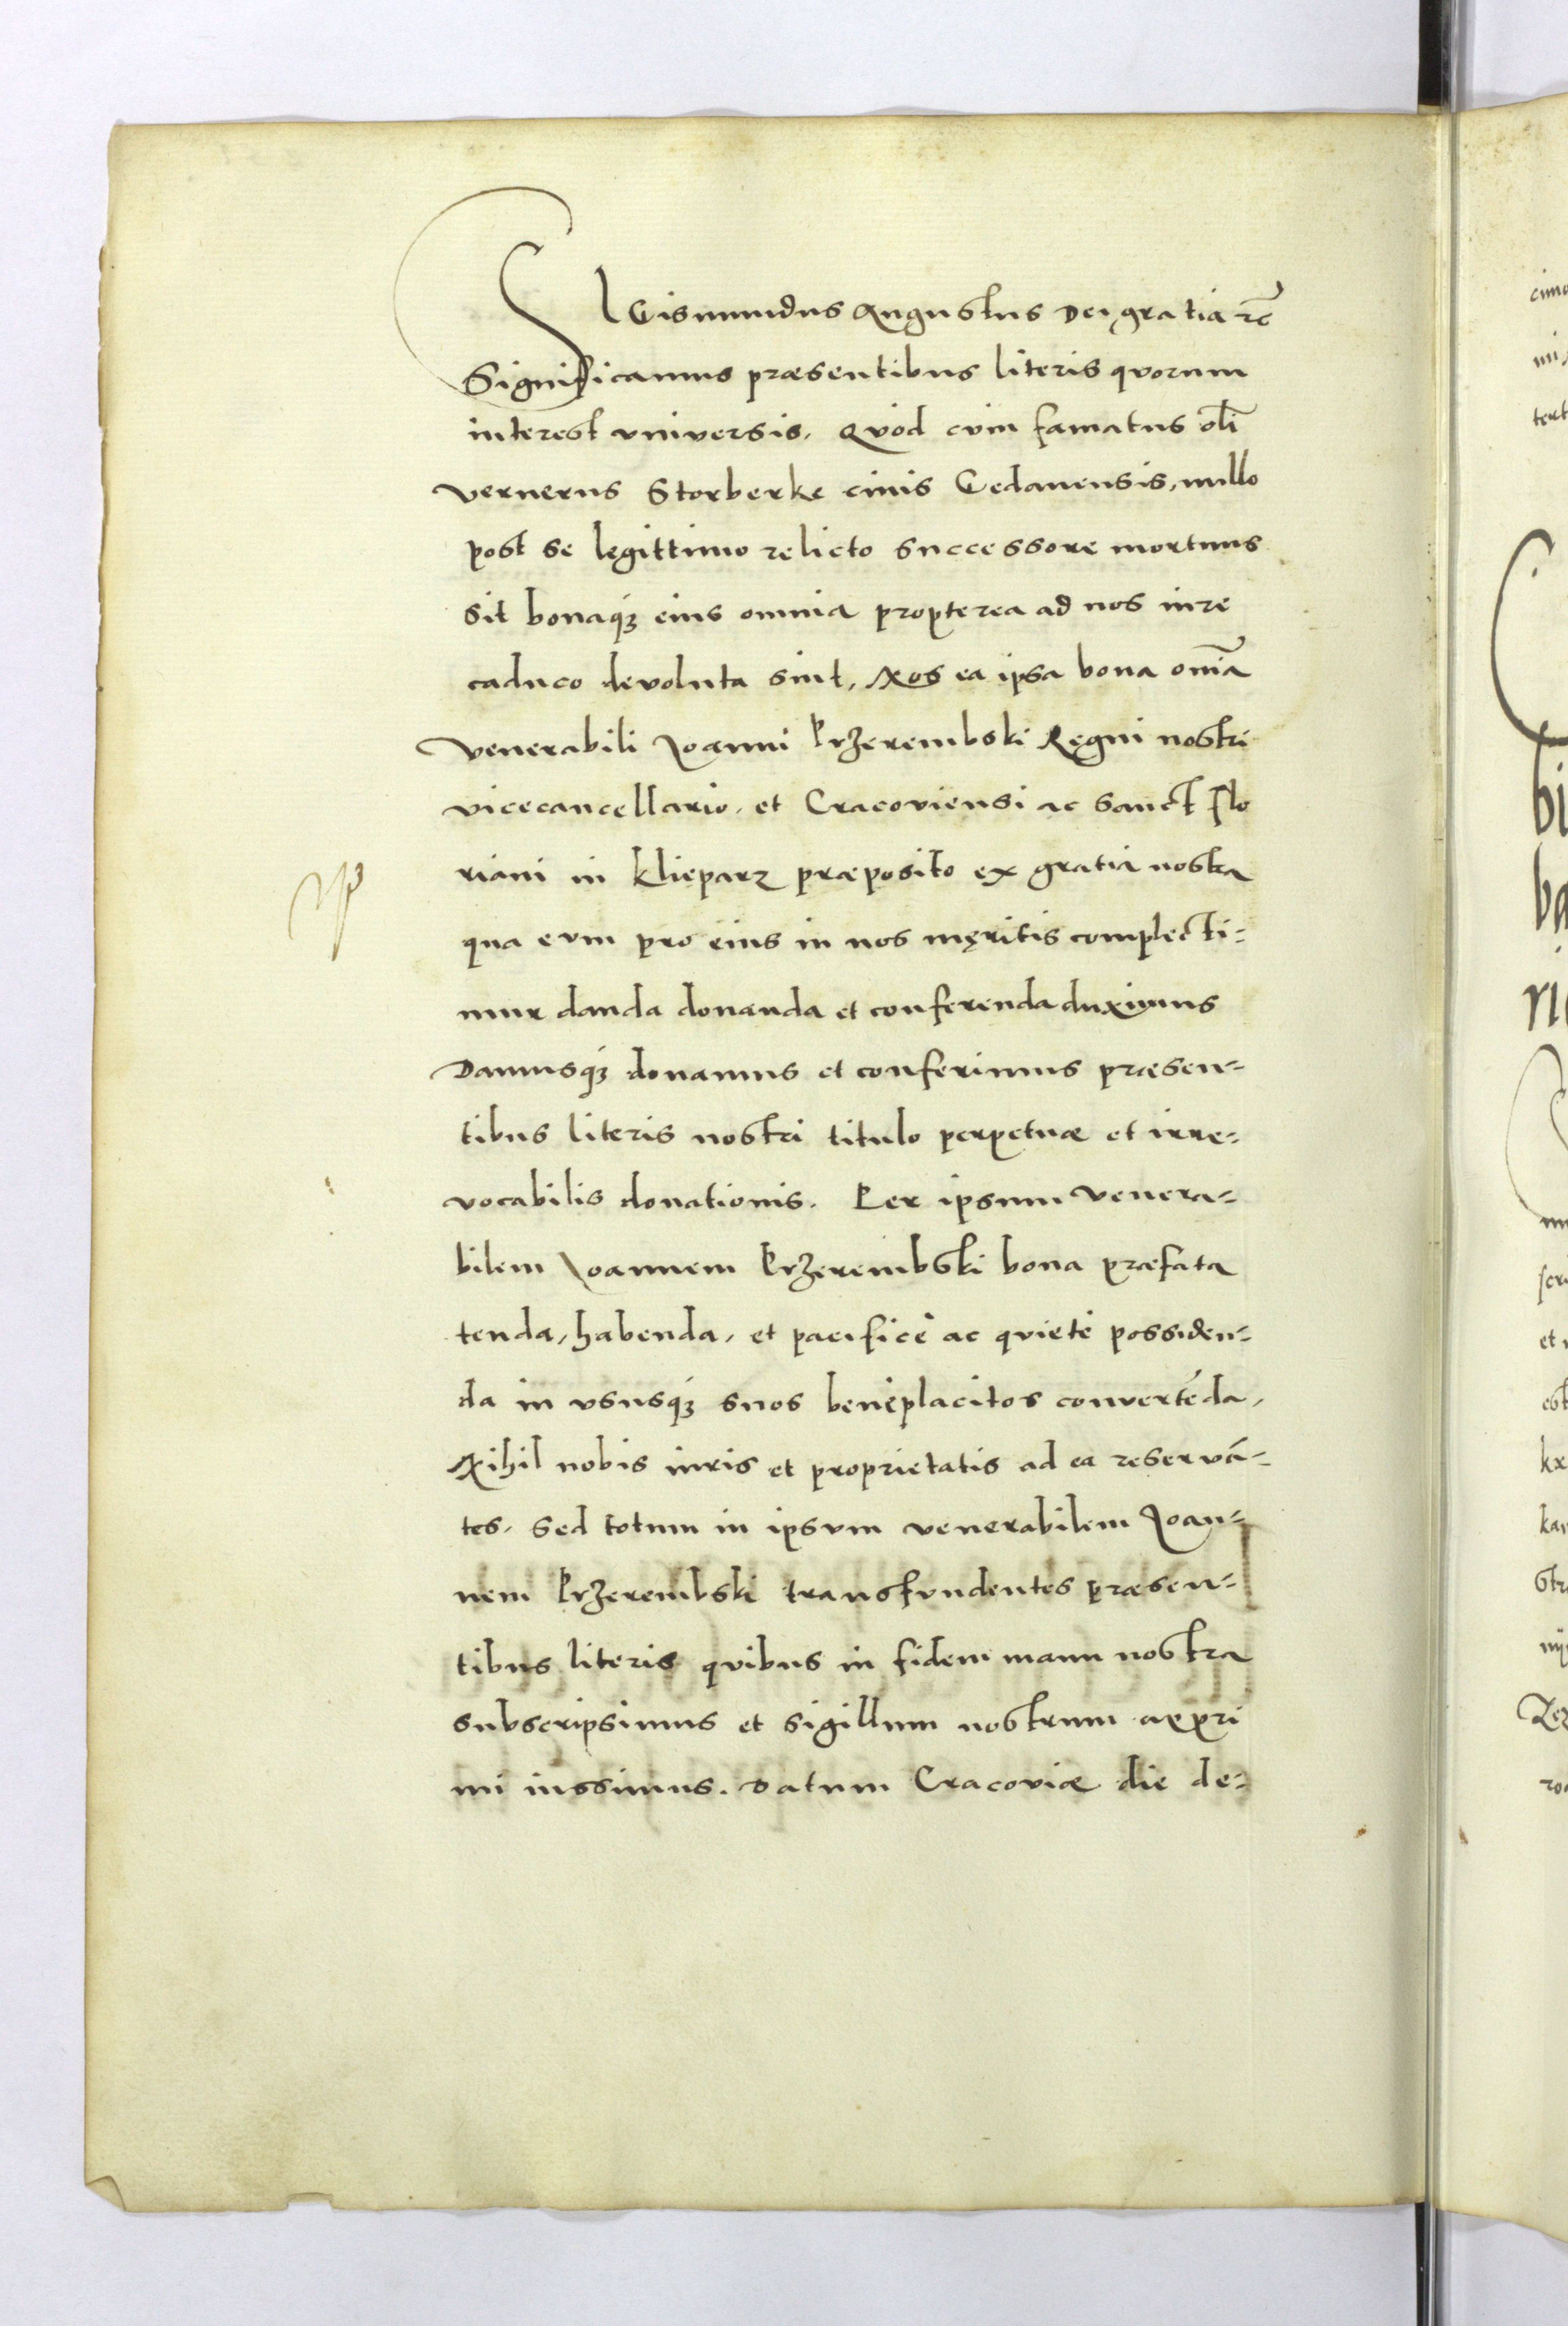 SIGismundus Augustus Dei gratia rc̃
Significamus præsentibus literis quorum
interest vniversis. Quòd cùm famatus olĩ
vernerus Storberke ciuis Gedanensis, nullo
post se legittimo relicto successore mortuus
sit bonaq́ꝫ eius omnia propterea ad nos iure
caduco devoluta sint, Nos ea ipsa bona om̃ia
venerabili Joanni Przerembski Regni nostri
vicecancellario, et Cracoviensi ac Sanct Flo
riani in Klieparz præposito ex gratia nostra
qua eum pro eius in nos meritis complecti-
mur danda donanda et conferenda duximus
Damusq́ꝫ donamus et conferimus præsen-
tibus literis nostri titulo perpetuæ et irre-
vocabilis donationis. Per ipsum venera-
bilem Joannem Przerembski bona præfata
tenda, habenda, et pacificè ac quietè possiden-
da in vsusq́ꝫ suos beneplacitos convertẽda,
Nihil nobis iuris et proprietatis ad ea reservã-
tes. Sed totum in ipsum venerabilem Joan-
nem Przerembski transfundentes præsen-
tibus literis quibus in fidem manu nostra
subscripsimus et sigillum nostrum appri
mi iussimus. Datum Cracoviæ die de-